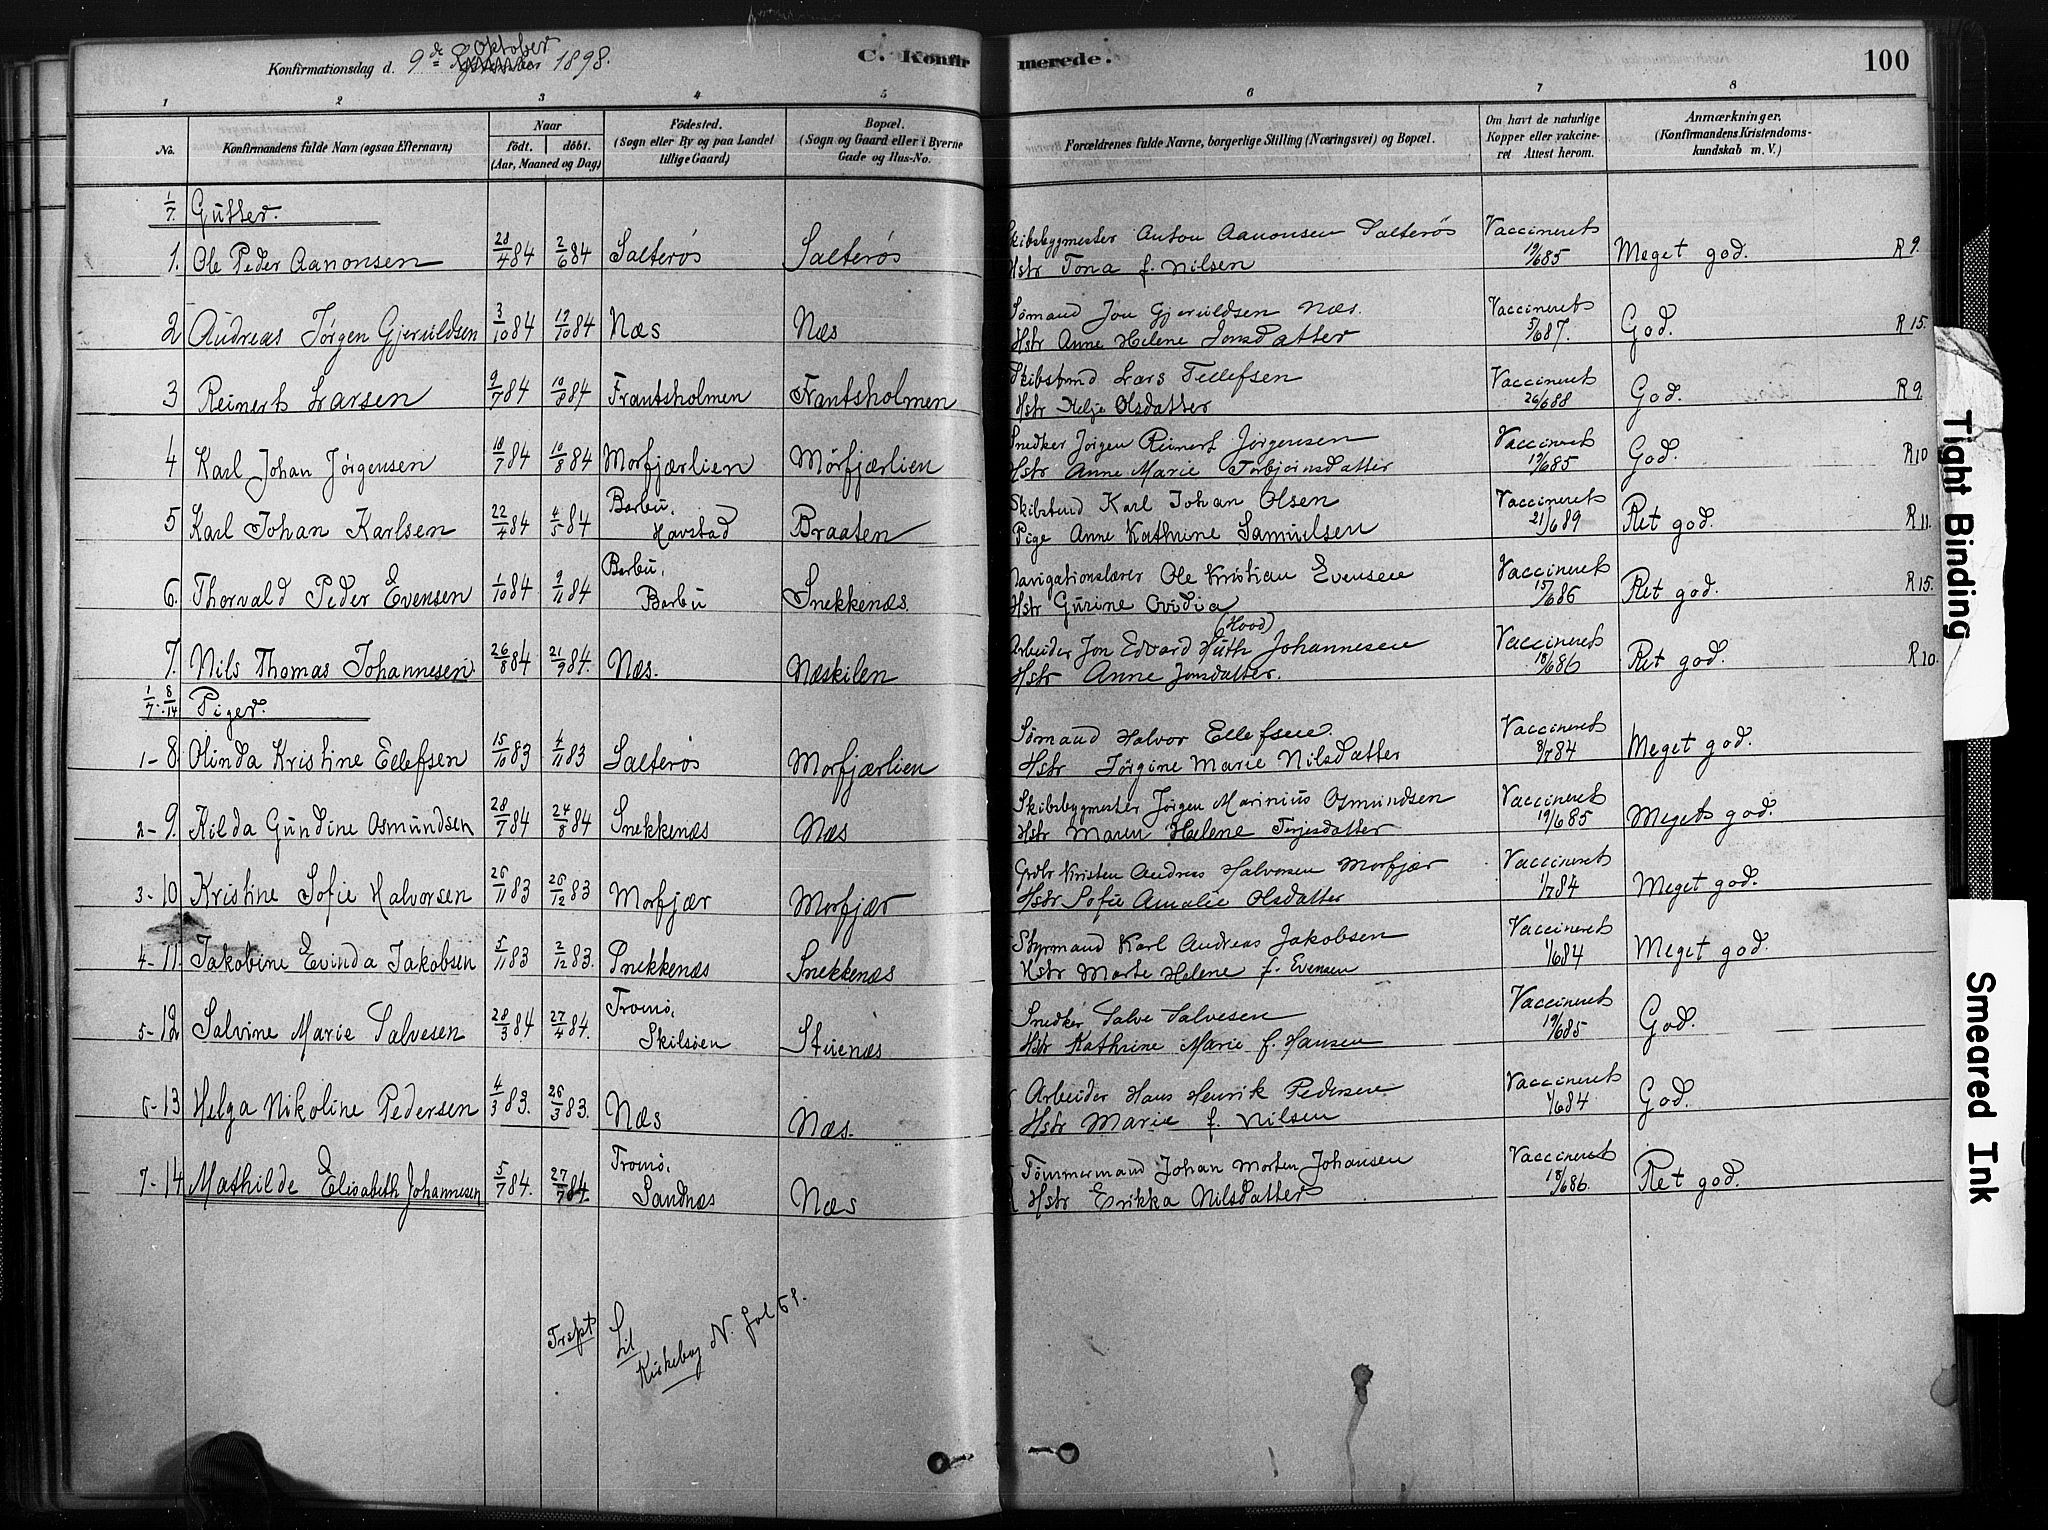 Konfirmationsdag d. 9de Oktober 1898.
C. Konfirmerede.
100
1 2 3 4 5 6 7 8
No.
Konfirmandens fulde Navn (ogsaa Efternavn)
Naar
födt. döbt.
(Aar, Maaned og Dag)
Födested.
(Sogn eller By og paa Landet
tillige Gaard)
Bopæl.
(Sogn og Gaard eller i Byerne
Gade og Hus-No.
Forældrenes fulde Navne, borgerlige Stilling (Næringsvei) og Bopæl.
Om havt de naturlige
Kopper eller vakcine-
ret Attest herom.
Anmærkninger.
(Konfirmandens Kristendoms-
kundskab m. V.)
1/7. Gutter.
1. Ole Peder Aanonsen 28/4 84 2/6 84 Salterøs Salterøs Skibsbygmester Anton Aanonsen Salterøs Vaccineret Meget god. R 9.
Hstr Tona f. Nilsen 19/6 85
2 Andreas Jørgen Gjeruldsen 3/10 84 19/10 84 Næs Næs Sømand Jon Gjeruldsen Næs. Vaccineret God. R 15.
Hstr Anne Helene Jonsdatter 5/6 87.
3 Reinert Larsen 9/7 84 10/8 84 Frantsholmen Frantsholmen Skibstmd Lars Tellefsen Vaccineret God. R 9.
Hstr Helje Olsdatter 26/6 88
4 Karl Johan Jørgensen 18/7 84 10/8 84 Morfjærlien Mørfjærlien Snedker Jørgen Reinert Jørgensen Vaccineret God. R 10
Hstr Anne Marie Torbjørnsdatter 19/6 85
5 Karl Johan Karlsen 22/4 84 4/5 84 Barbu, Havstad Braaten Skibstmd Karl Johan Olsen Vaccineret Ret god. R 11.
Pige Anne Kathrine Samuelsen 21/6 89
6. Thorvald Peder Evensen 1/10 84 9/11 84 Barbu, Barbu Snekkenæs. Navigationslærer Ole Kristian Evensen Vaccineret Ret god. R 15.
Hstr Gurine Ovidia 15/6 86
7. Nils Thomas Johannesen 26/8 84 21/9 84. Næs. Næskilen Arbeider Jon Edvard Huth (Hood) Johannesen Vaccineret Ret god. R 10.
Hstr Anne Jonsdatter. 18/6 86
1/7. 8/14 Piger.
1-8 Olinda Kristine Ellefsen 15/10 83 4/11 83 Salterøs Morfjærlien Sømand Halvor Ellefsen. Vaccineret Meget god.
Hstr Jørgine Marie Nilsdatter 8/7 84
2-9. Hilda Gundine Osmundsen 28/7 84 24/8 84 Snekkenæs Næs Skibsbygmester Jørgen Marinius Osmundsen Vaccineret Meget god.
Hstr Maren Helene Terjesdatter 19/6 85
3-10 Kristine Sofie Halvorsen 25/11 83 26/12 83 Morfjær Morfjær Grdbr Kristen Andreas Halvorsen Morfjær Vaccineret Meget god.
Hstr Sofie Amalie Olsdatter 1/7 84
4-11. Jakobine Evinda Jakobsen 5/11 83 2/12 83. Snekkenæs Snekkenæs Styrmand Karl Andreas Jakobsen Vaccineret Meget god.
Hstr Marte Helene f. Evensen 1/6 84
5-12 Salvine Marie Salvesen 28/3 84 27/4 84. Tromø, Skilsøen Stuenæs Snedker Salve Salvesen Vaccineret God.
Hstr Kathrine Marie f. Hansen 19/6 85
6-13 Helga Nikoline Pedersen 4/3 83. 26/3 83. Næs Næs. Arbeider Hans Henrik Pedersen Vaccineret God.
Hstr Marie f. Nilsen 1/6 84
7-14 Mathilde Elisabeth Johannesen 5/7 84. 27/7 84. Tromø, Sandnæs Næs Tømmermand Johan Morten Johansen Vaccineret Ret god.
Hstr Erikka Nilsdatter 18/6 86
Kirkebog N. fol 69.
Tight Binding
Smeared Ink